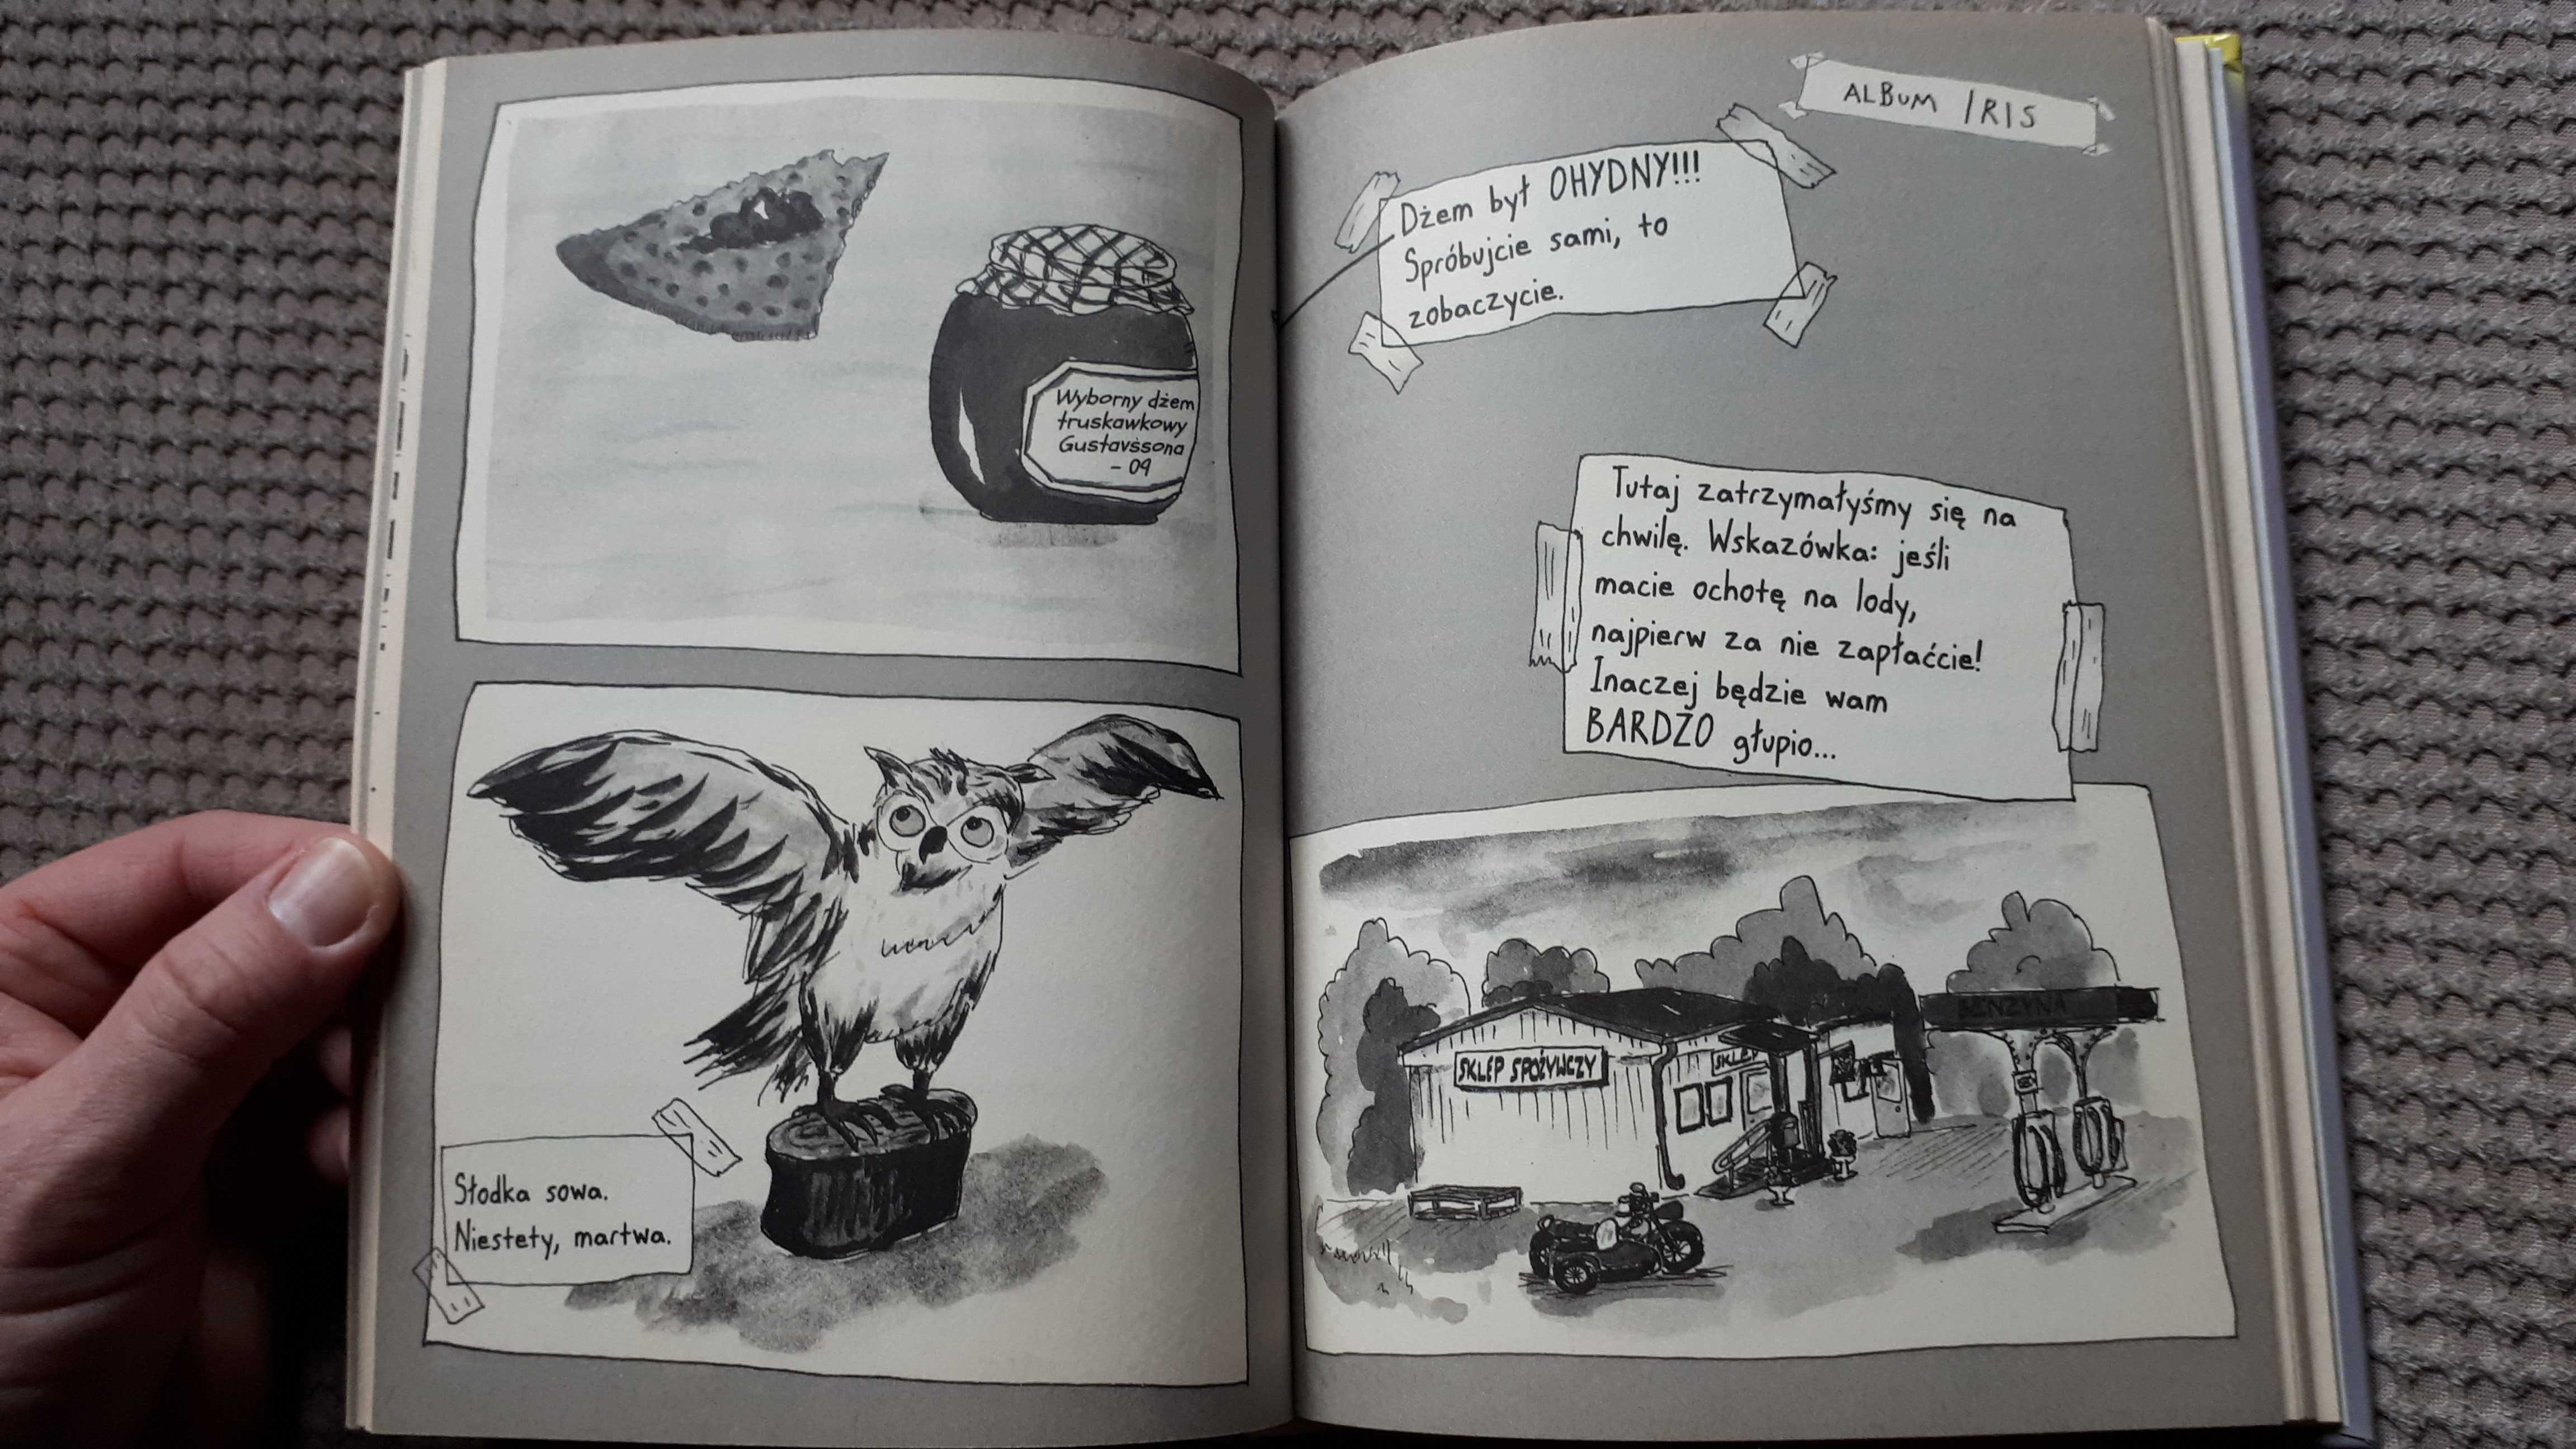 Wyborny dżem
truskawkowy
Gustavssona
- 09
Słodka sowa.
Niestety, martwa.
ALBUM IRIS
Dżem był OHYDNY!!!
Spróbujcie sami, to
zobaczycie.
Tutaj zatrzymałyśmy się na
chwilę. Wskazówka: jeśli
macie ochotę na lody,
najpierw za nie zapłaćcie!
Inaczej będzie wam
BARDZO głupio...
BENZYNA
SKLEP SPOŻYWCZY
SKLEP